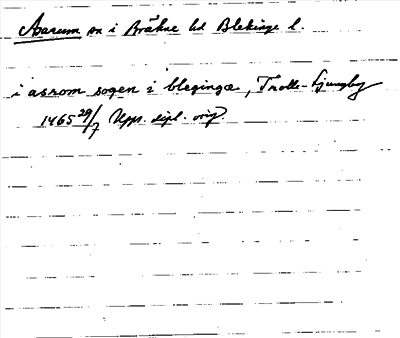 Asarum sn i Bräkne hd Blekinge l.
i asrom sogen i bleginge, Trolle-Ljungby
1465 29/7 Upps. dipl. orig.